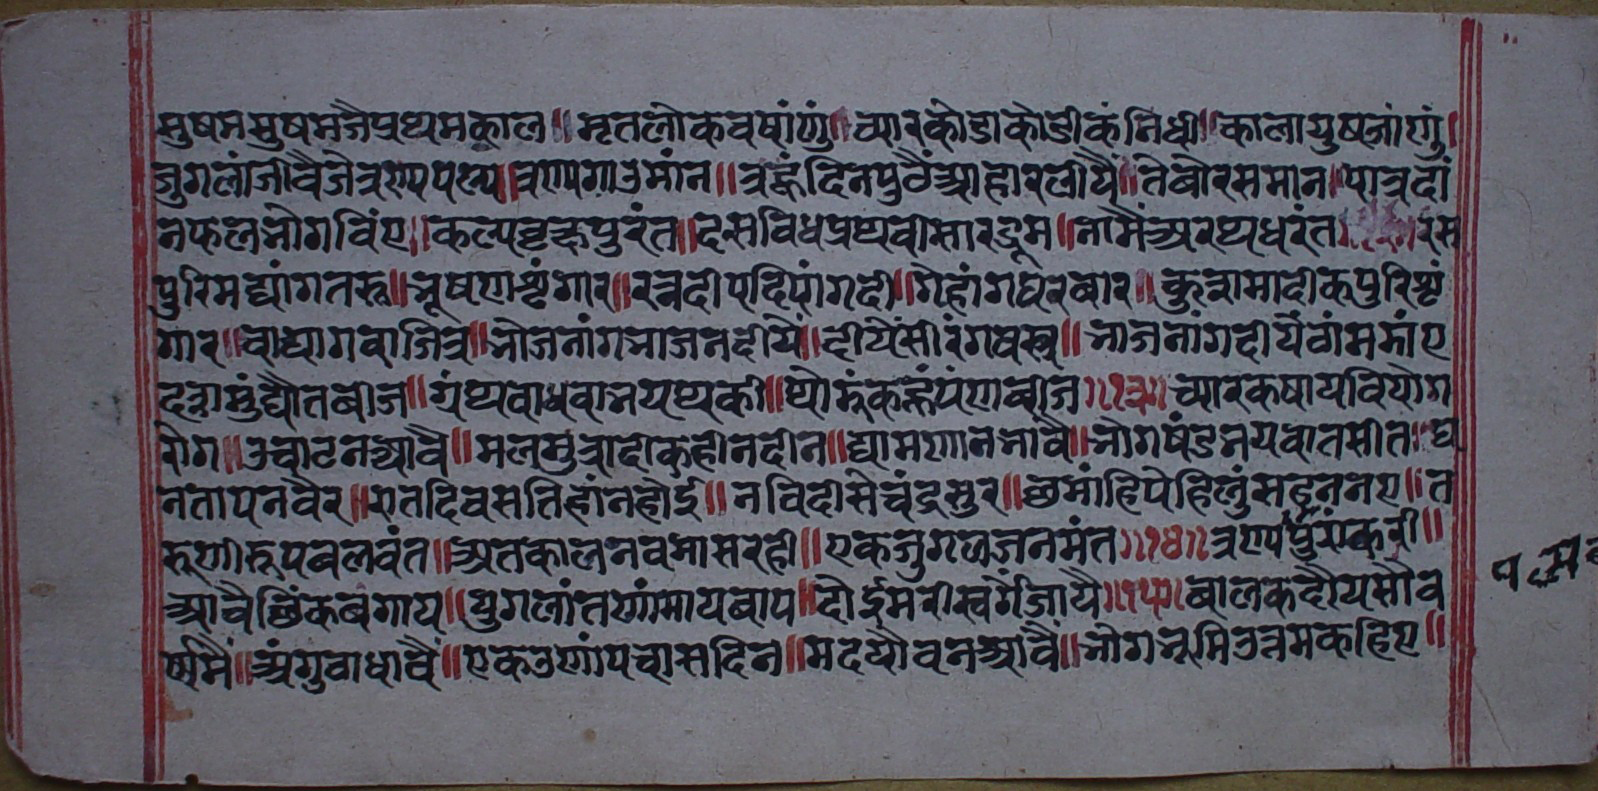 सुषमसुषमजैप्रथमकाल॥ मृतलोकवषांणुं॥ च्यारकोडाकोडीकंनिधी॥ कालायुषजांणुं।
जुगलांजीवैजेत्रणपल्य॥ त्रणगाउमांन॥ त्रह्णंदिनपुठैंआहारलीयैं॥ तेबोरसमांन॥ पात्रदां
नफलभोगविंए॥ कल्पवृक्षपुरंत॥ दसविधप्रथवीसारद्रूम॥ नामैंअरथधरंत रस
पुरिमद्यांगतरू॥ भूषणशृंगार॥ रत्नदीपदिपांगदी॥ गेहांगघरबार॥ कुत्रामादीकपुरिशृं
गार॥ वाद्यागवाजित्र॥ भोजनांगभाजनदीयै॥ दीयैंसोरंगषस्त्र॥ भाजनांगदीयैंवांमझांए
ग्रंथवाधवाभयथकी॥ च्यारकषायवियोग
रोग॥ उचाटनआवै॥ मलमुत्रादीकहीनदीन॥ भोगषंडभयवातसीत॥ घ
नतापनवैर॥ रातदिवसतिहांनहोई॥ नविदीसैचंद्रसुर॥ छमांहिपेहिलुंसहूननए॥ त
रूणीरूपबलवंत॥ अतकालनवमासरही॥ एकजुगलजनमंत॥१४॥
आवैछिंकबगाय॥ युगलांतणांमायबाप॥ दोईमरीस्वर्गेंजायै॥१५॥ बालकदोयसोव
र्षसमैं॥ अंगुवाधावैं॥ एकउणांपचासदिन॥ मदयौवनआवैं॥ भोगभूमिउत्तमकहिए॥